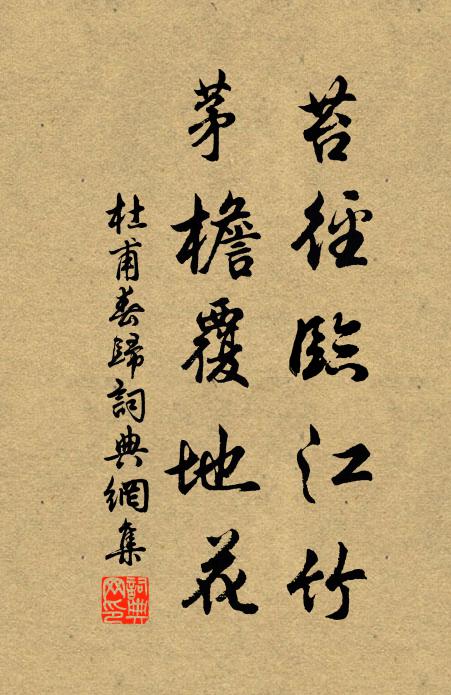 苔徑臨江竹
茅檐覆地花
杜甫春歸詞典網集
詞典網印